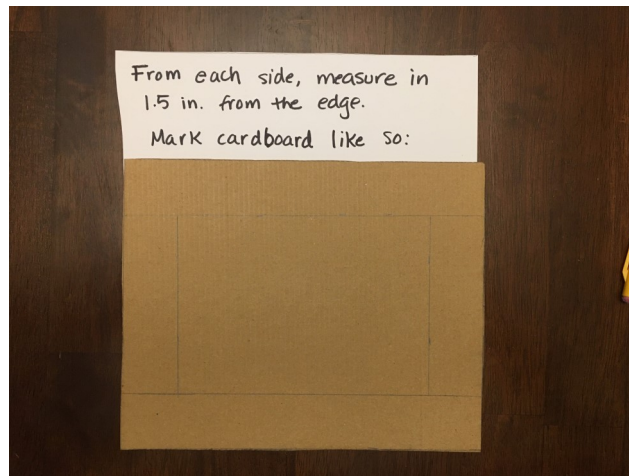 From each side, measure in
1.5 in. from the edge.
Mark cardboard like so: